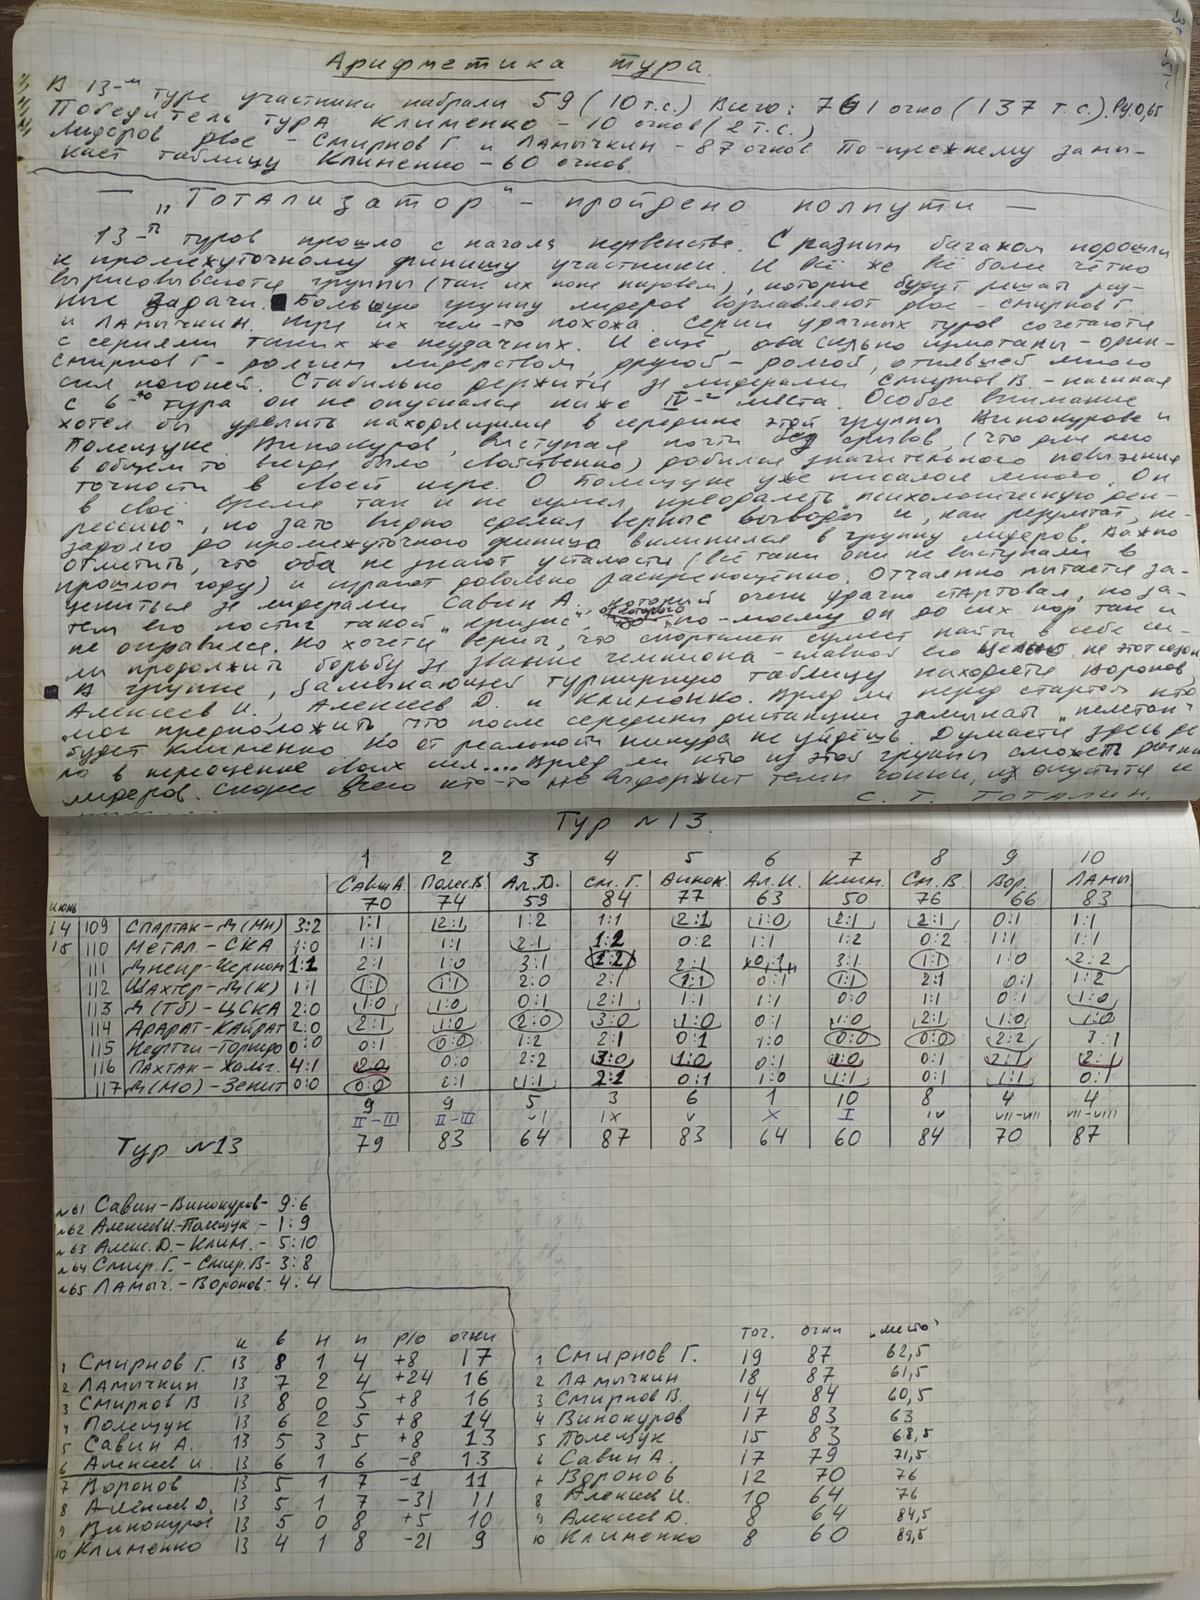 Арифметика тура.
В 13-м туре участники набрали 59 (10 т.с.) Всего: 761 очко (137 т.с.). Ру.0,65
Победитель тура Клименко - 10 очков (2 т.с.)
Лидеров двое - Смирнов Г. и Ламычкин - 87 очков. По-прежнему замы-
кает таблицу Клименко - 60 очков.
— „Тотализатор" - пройдено полпути —
13-ть туров прошло с начала первенства. С разным багажом подошли
к промежуточному финишу участники. И всё же всё более чётко
вырисовываются группы (так их пока назовём), которые будут решать раз-
ные задачи. Большую группу лидеров возглавляют двое - Смирнов Г.
и Ламычкин. Игра их чем-то похожа. Серии удачных туров сочетаются
с сериями таких же неудачных. И ещё, оба сильно измотаны - один -
Смирнов Г - долгим лидерством, другой - долгой, отнявшей много
сил погоней. Стабильно держится за лидерами Смирнов В. - начиная
с 6-го тура он не опускался ниже IV-го места. Особое внимание
хотел бы уделить находящимся в середине этой группы Винокурове и
Полещуке. Винокуров, выступая почти без срывов, (что для него
в общем то всегда было свойственно) добился значительного повышения
точности в своей игре. О Полещуке уже писалось много. Он
в своё время так и не сумел преодолеть „психологическую деп-
рессию", но зато видно сделал верные выводы и, как результат, не-
задолго до промежуточного финиша вклинился в группу лидеров. Важно
отметить, что оба не знают усталости (всё таки они не выступали в
прошлом году) и играют довольно раскрепощённо. Отчаянно пытается за-
цепиться за лидерами Савин А., который очень удачно стартовал, но за-
тем его постиг такой „кризис", от которого по-моему он до сих пор так и
не оправился. Но хочется верить, что спортсмен сумеет найти в себе си-
ли продолжить борьбу за звание чемпиона - главной его целью на этот сезон.
В группе, замыкающей турнирную таблицу находятся Воронов,
Алексеев И., Алексеев Д. и Клименко. Вряд ли перед стартом кто
мог предположить, что после середины дистанции замыкать „пелетон"
будет Клименко. Но от реальности никуда не уйдёшь. Думается здесь де-
ло в переоценке своих сил.... Вряд ли кто из этой группы сможет
лидеров. Скорее всего кто-то не выдержит темп гонки, их опустится к
С. Т. Тоталин.
Тур №13.
1 2 3 4 5 6 7 8 9 10
Савин А. Полещ.В. Ал.Д. См.Г. Винок. Ал.И. Клим. См.В. Вор. Ламы
июнь 70 74 59 84 77 63 50 76 66 83
14 109 Спартак-Д(Мн) 3:2 1:1 2:1 1:2 1:1 2:1 1:0 2:1 2:1 0:1 1:1
15 110 Метал.-СКА 1:0 1:1 1:1 2:1 1:2 0:2 1:1 1:2 0:2 1:1 1:1
111 Днепр-Черном 1:1 2:1 1:0 3:1 1:2 2:1 0:1 3:1 1:1 1:0 2:2
112 Шахтер-Д(К) 1:1 1:1 1:1 2:0 2:1 1:1 0:1 1:1 2:1 0:1 1:2
113 Д(Тб)-ЦСКА 2:0 1:0 1:0 0:1 2:1 1:1 1:1 0:0 1:1 0:1 1:0
114 Арарат-Кайрат 2:0 2:1 1:0 2:0 3:0 1:0 0:1 1:0 2:1 1:0 1:0
115 Нефтчи-Торпедо 0:0 0:1 0:0 1:2 2:1 0:1 1:0 0:0 0:0 2:2 3:1
116 Пахтак-Жальг. 4:1 2:0 0:0 2:2 3:0 1:0 0:1 1:0 0:1 2:1 2:1
117 Д(Мо)-Зенит 0:0 0:0 2:1 1:1 2:1 0:1 1:0 1:1 0:1 1:1 0:1
9 9 5 3 6 1 10 8 4 4
II-III II-III VI IX V X I IV VII-VIII VII-VIII
Тур №13 79 83 64 87 83 64 60 84 70 87
№61 Савин-Винокуров- 9:6
№62 Алексеев И.-Полещук - 1:9
№63 Алекс. Д.-Клим. - 5:10
№64 Смир. Г. - Смир. В- 3:8
№65 Ламыч. - Воронов- 4:4
и в н п р/о очки
1 Смирнов Г. 13 8 1 4 +8 17
2 Ламычкин 13 7 2 4 +24 16
3 Смирнов В 13 8 0 5 +8 16
4 Полещук 13 6 2 5 +8 14
5 Савин А. 13 5 3 5 +8 13
6 Алексеев И. 13 6 1 6 -8 13
7 Воронов 13 5 1 7 -1 11
8 Алексеев Д. 13 5 1 7 -31 11
9 Винокуров 13 5 0 8 +5 10
10 Клименко 13 4 1 8 -21 9
точ. очки „место"
1 Смирнов Г. 19 87 62,5
2 Ламычкин 18 87 61,5
3 Смирнов В. 14 84 60,5
4 Винокуров 17 83 63
5 Полещук 15 83 68,5
6 Савин А. 17 79 71,5
7 Воронов 12 70 76
8 Алексеев И. 10 64 76
9 Алексеев Д. 8 64 84,5
10 Клименко 8 60 89,5